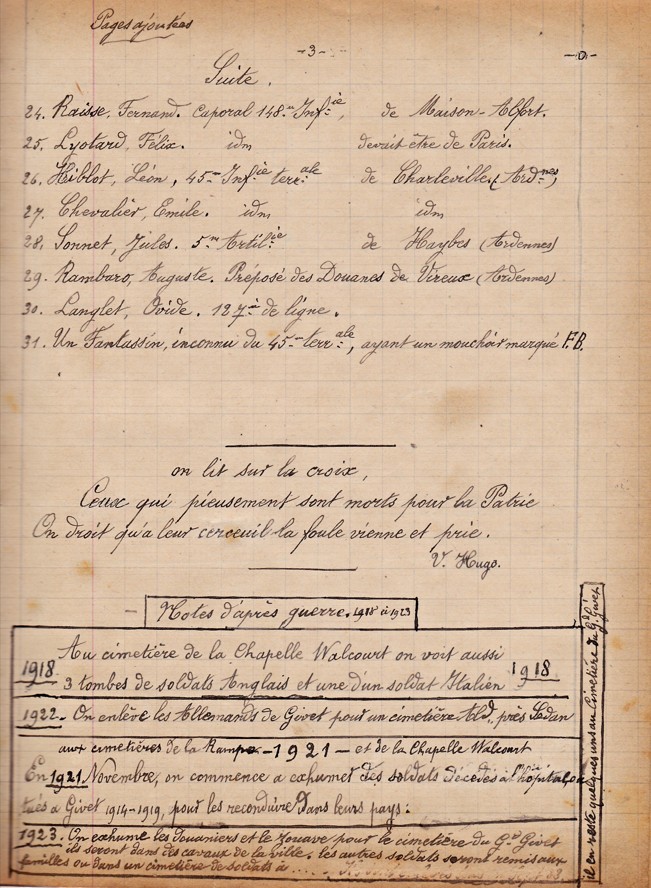 Pages ajoutées
- 3 -
Suite.
24. Raisse, Fernand. Caporal 148.e Inf.ie, de Maison-Alfort.
25. Lyotard, Félix. idm devait être de Paris.
26. Hiblot, Léon, 45.me Inf.ie terr.ale de Charleville (Ard.nes)
27. Chevalier, Emile. idm idm
28. Sonnet, Jules. 5.me Artil.ie de Haybes (Ardennes)
29. Rambaro, Auguste. Préposé des Douanes de Vireux (Ardennes)
30. Langlet, Ovide. 127.me de ligne.
31. Un Fantassin, inconnu du 45.me terr.ale, ayant un mouchoir marqué F.B.
on lit sur la croix,
Ceux qui pieusement sont morts pour la Patrie
On droit qu'a leur cerceuil la foule vienne et prie.
V. Hugo.
Notes d'après guerre. 1918 à 1923
1918. Au cimetière de la Chapelle Walcourt on voit aussi 1918.
3 tombes de soldats Anglais et une d'un soldat Italien
1922 - On enlève les Allemands de Givet pour un cimetière Ald. près Sedan
aux cimetières de la Rampe - 1921 - et de la Chapelle Walcourt
En 1921 Novembre, on commence a exhumer des soldats décédés à l'hôpital, ou
tués a Givet 1914-1919, pour les reconduire dans leurs pays:
1923. On exhume les douaniers et le zouave pour le cimetière du Gd Givet
ils seront dans des cavaux de la ville, les autres soldats seront remis aux
familles ou dans un cimetière de soldats à
il en reste quelques uns au Cimetière du Gd Givet